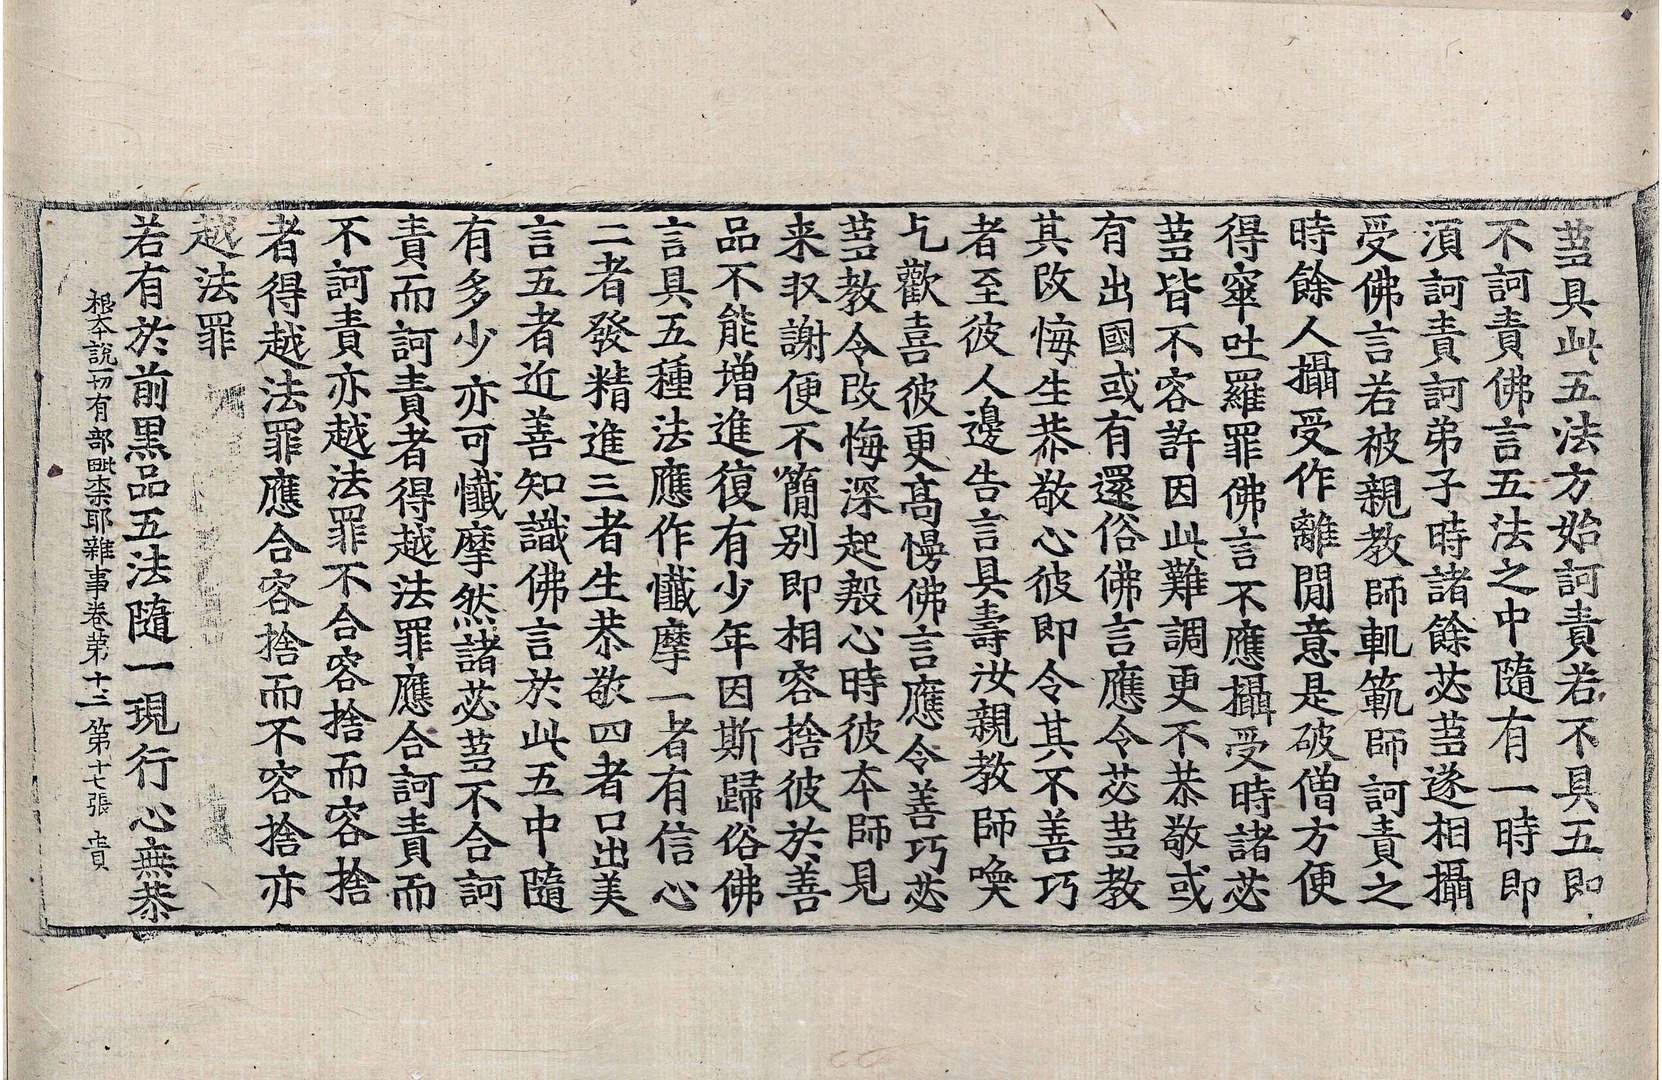 苾芻具此五法方始訶責若不具五即
不訶責佛言五法之中隨有一時即
湏訶責訶弟子時諸餘苾芻遂相攝
受佛言若被親教師軌範師訶責之
時餘人攝受作離間意是破僧方便
得窣吐羅罪佛言不應攝受時諸苾
芻皆不容許因此難調更不恭敬或
有出國或有還俗佛言應令苾芻教
其改悔生恭敬心彼即令其不善巧
者至彼人邊告言具壽汝親教師喚
乞歡喜彼更高慢佛言應令善巧苾
芻教令改悔深起殷心時彼本師見
来收謝便不簡別即相容捨彼於善
品不能增進復有少年因斯歸俗佛
言具五種法應作懺摩一者有信心
二者發精進三者生恭敬四者口出美
言五者近善知識佛言於此五中隨
有多少亦可懺摩然諸苾芻不合訶
責而訶責者得越法罪應合訶責而
不訶責亦越法罪不合容捨而容捨
者得越法罪應合容捨而不容捨亦
越法罪
若有於前黑品五法隨一現行心無恭
根本說一切有部毗柰耶雜事卷第十三 第十七張 貴